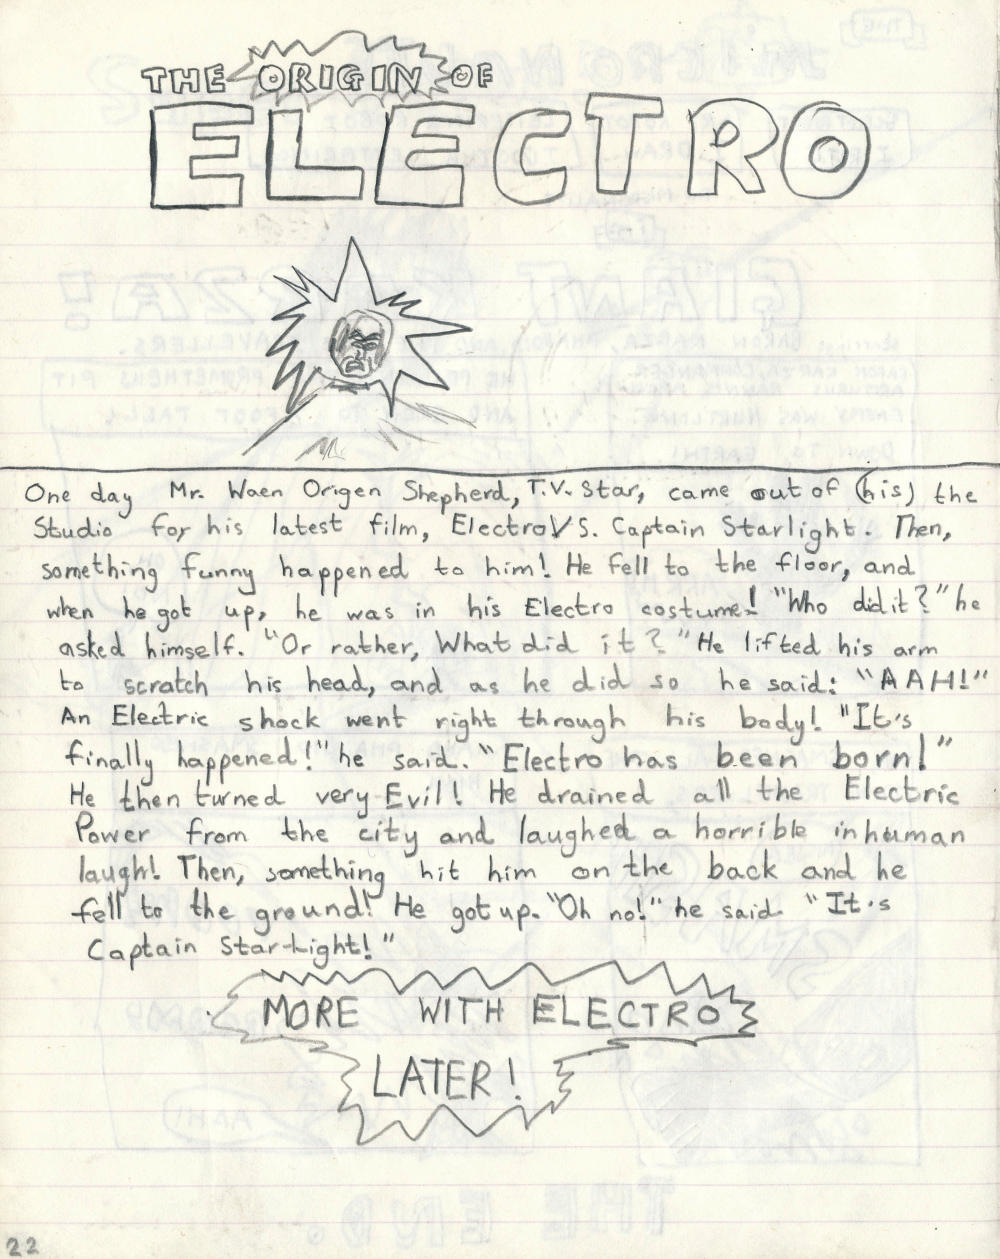 THE ORIGIN OF
ELECTRO
One day Mr. Waen Origen Shepherd, T.V. Star, came out of (his) the
Studio for his latest film, Electro VS. Captain Starlight. Then,
something funny happened to him! He fell to the floor, and
when he got up, he was in his Electro costume! "Who did it?" he
asked himself. "Or rather, What did it?" He lifted his arm
to scratch his head, and as he did so he said: "AAH!"
An Electric shock went right through his body! "It's
finally happened!" he said. "Electro has been born!"
He then turned very Evil! He drained all the Electric
Power from the city and laughed a horrible inhuman
laugh! Then, something hit him on the back and he
fell to the ground! He got up. "Oh no!" he said "It's
Captain Star-Light!"
MORE WITH ELECTRO
LATER!
22